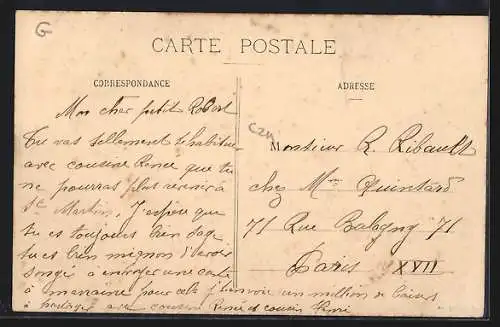 G
CARTE POSTALE
CORRESPONDANCE
ADRESSE
Mon cher petit Robert
Tu vas tellement t'habituer
avec cousine Renée que tu
ne pourras plus revenir à
St Martin, J'espère que
tu es toujours bien sage
tu es bien mignon d'avoir
songé à envoyer une carte
à marraine pour cela j'envoie un million de baisers
à partager avec cousine Renée et cousin
Monsieur R. Ribault
chez Mme Quintard
71 Rue Balagny 71
Paris XVII